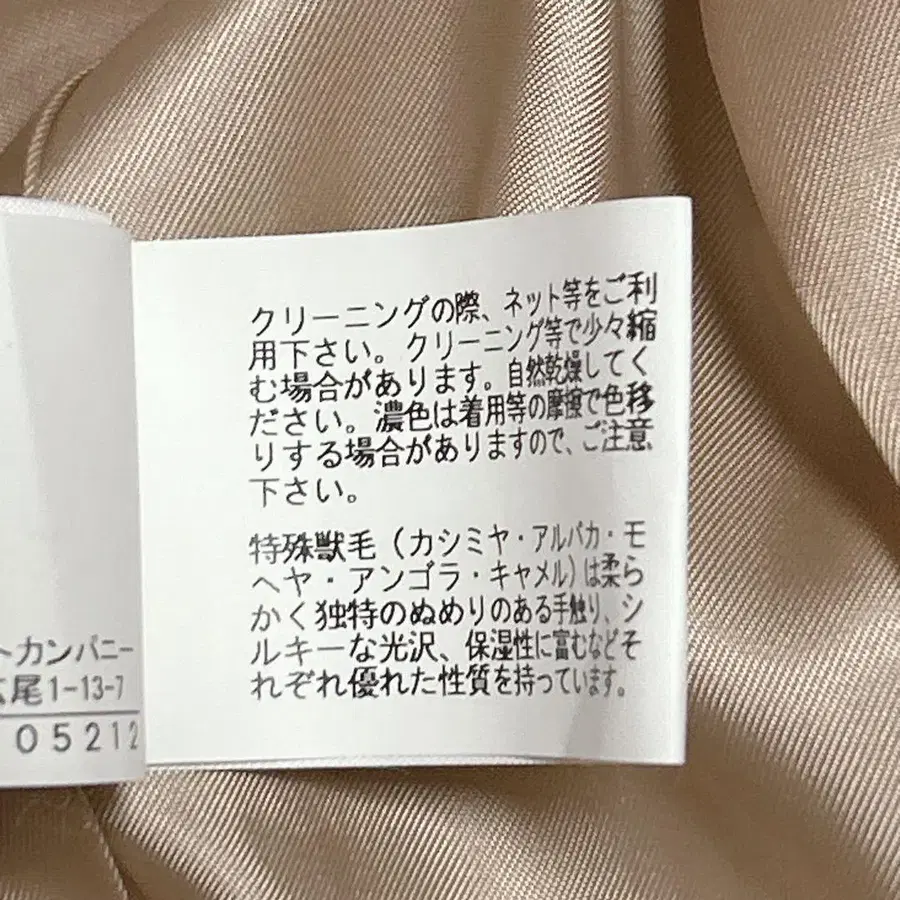 クリーニングの際、ネット等をご利
用下さい。クリーニング等で少々縮
む場合があります。自然乾燥してく
ださい。濃色は着用等の摩擦で色移
りする場合がありますので、ご注意
下さい。
特殊獣毛（カシミヤ・アルパカ・モ
ヘヤ・アンゴラ・キャメル）は柔ら
かく独特のぬめりのある手触り、シ
ルキーな光沢、保湿性に富むなどそ
れぞれ優れた性質を持っています。
トカンパニー
広尾1-13-7
05212